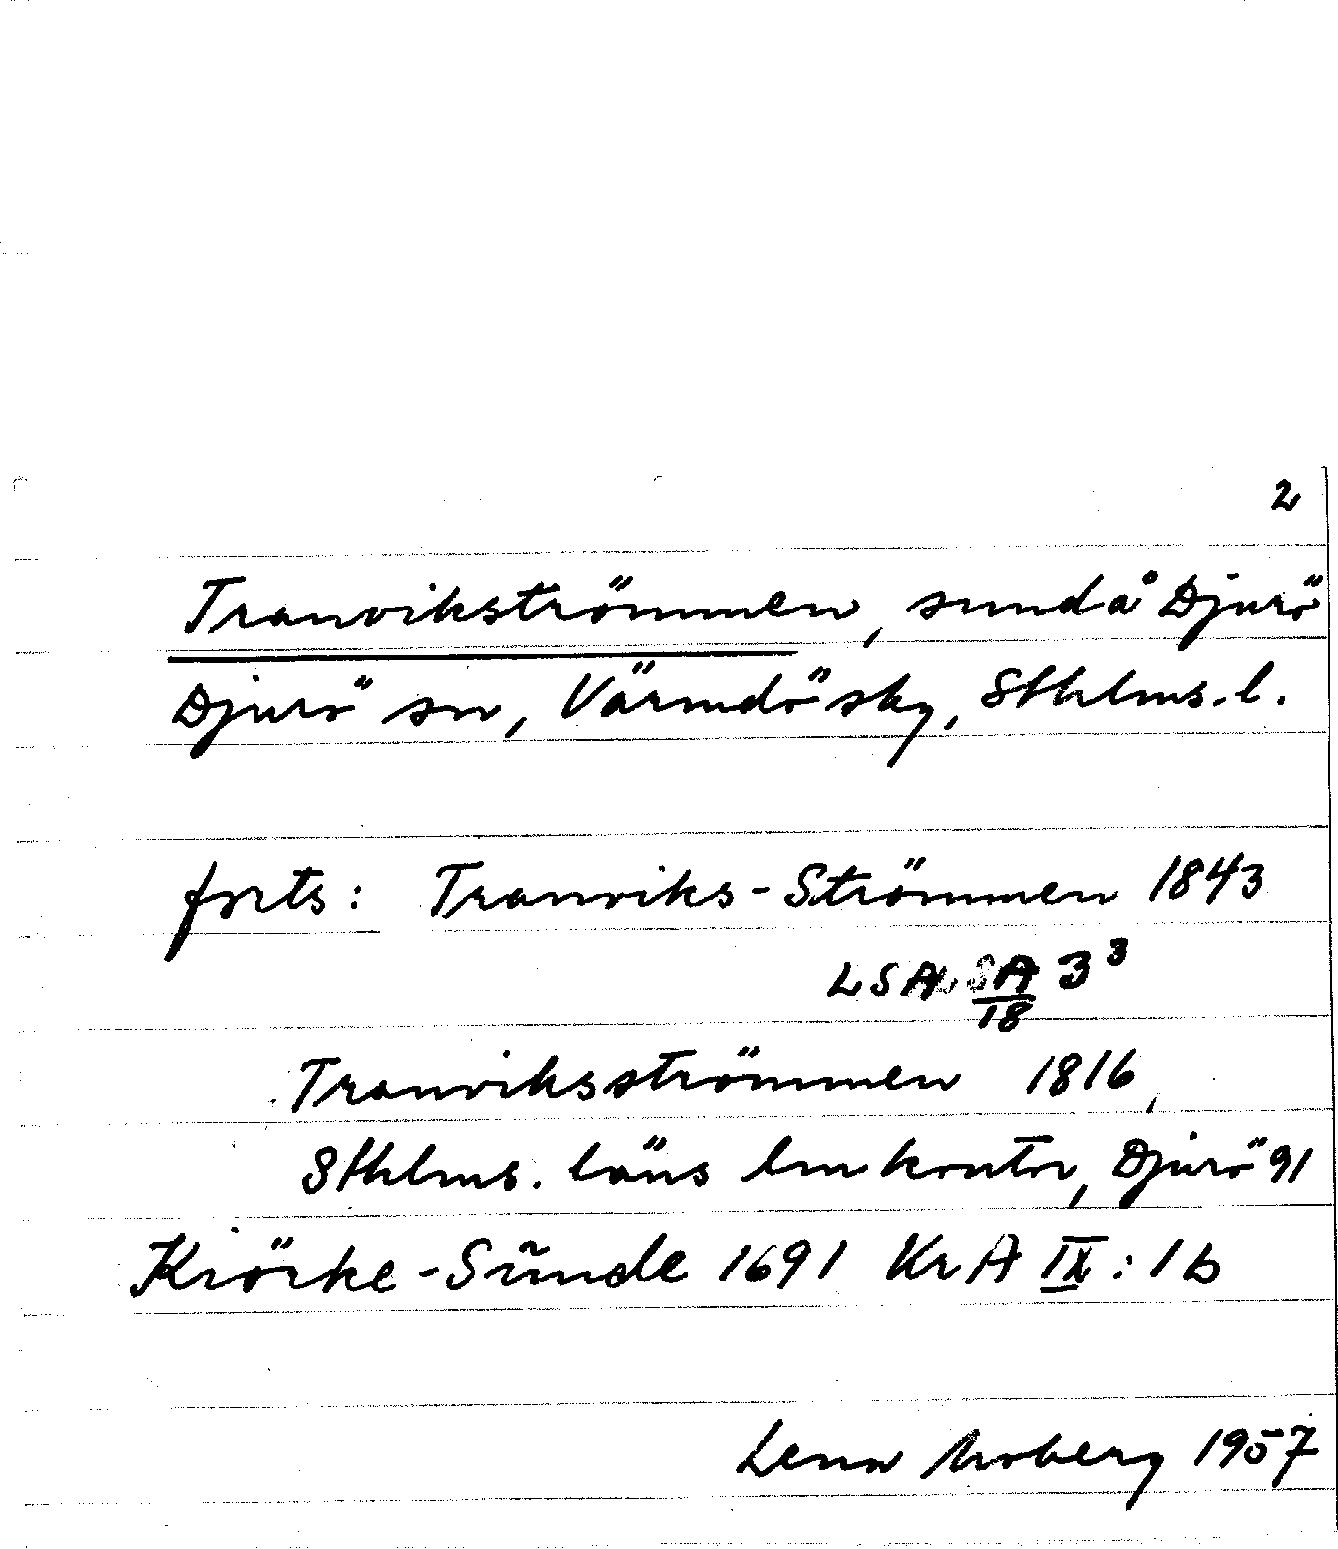 2
Tranvikströmmen, sund å Djurö
Djurö sn, Värmdö sky, Sthlms. l.
forts: Tranviks-Strömmen 1843
LSA SA/18 3³
Tranviksströmmen 1816,
Sthlms. läns lmkontor, Djurö 91
Kiörke-Sunde 1691 KrA IX:1b
Lena Moberg 1957